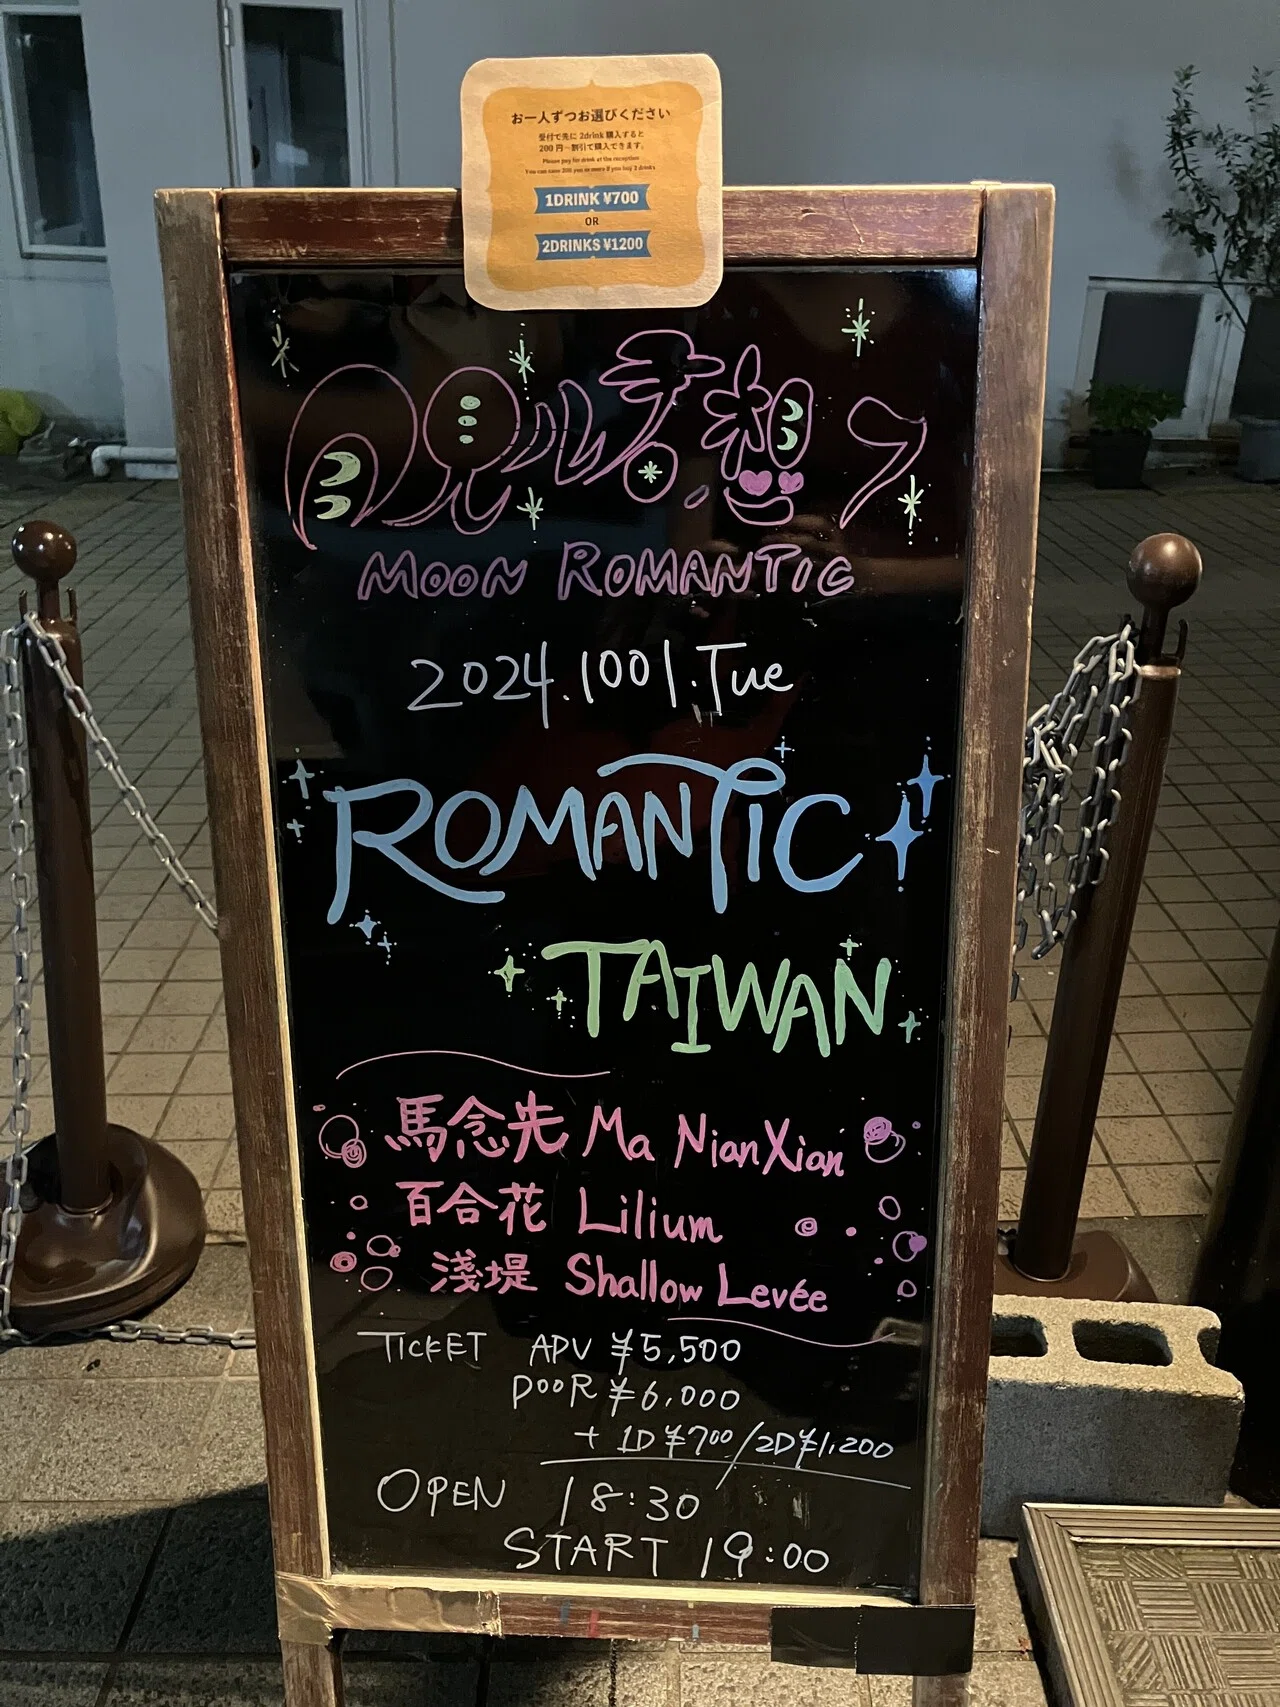 お一人ずつお選びください
受付で先に 2drink 購入すると
200 円~割引で購入できます。
Please pay for drink at the reception
You can save 200 yen or more if you buy 2 drinks
1DRINK ¥700
OR
2DRINKS ¥1200
月見ル君想フ
MOON ROMANTIC
2024.1001.Tue
ROMANTIC
TAIWAN
馬念先 Ma NianXian
百合花 Lilium
淺堤 Shallow Levée
TICKET ADV ¥5,500
DOOR ¥6,000
+ 1D ¥700/2D ¥1,200
OPEN 18:30
START 19:00